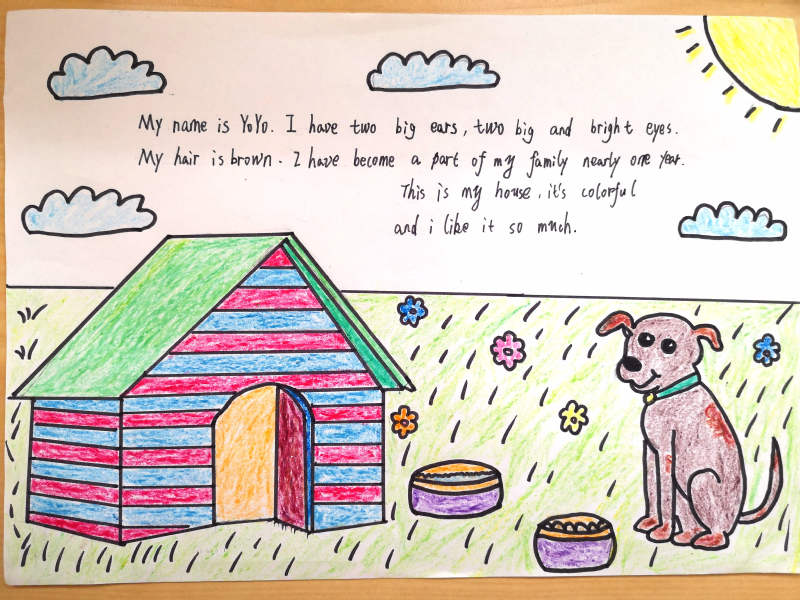 My name is YoYo. I have two big ears, two big and bright eyes.
My hair is brown. I have become a part of my family nearly one year.
This is my house, it's colorful
and i like it so much.